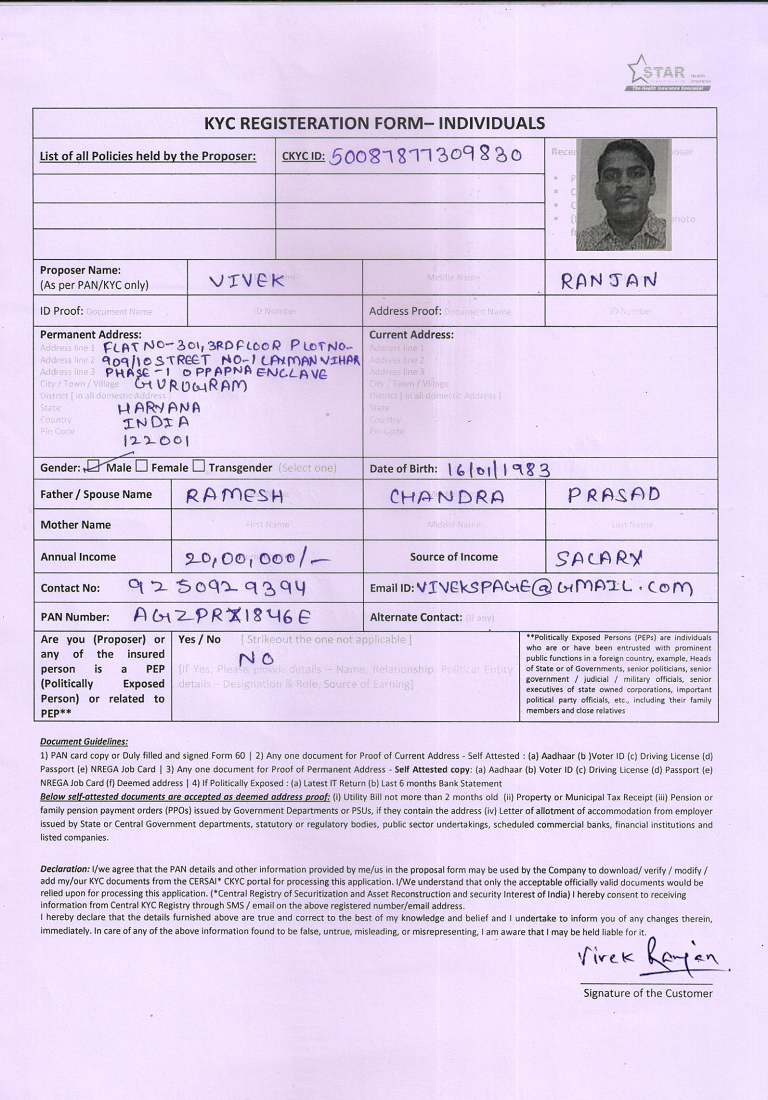 STAR Health Insurance
The Health Insurance Specialist
KYC REGISTERATION FORM– INDIVIDUALS
List of all Policies held by the Proposer:
CKYC ID: 50087877309830
Proposer Name:
(As per PAN/KYC only)
VIVEK
Middle Name
RANJAN
ID Proof: Document Name
ID Number
Address Proof: Document Name
ID Number
Permanent Address:
Address line 1 FLAT NO-301, 3RD FLOOR PLOT NO-
Address line 2 909/10 STREET NO-1 LAXMAN VIHAR
Address line 3 PHASE-1 OPP APNA ENCLAVE
City / Town / Village GURUGRAM
District [ in all domestic Address ]
State HARYANA
Country INDIA
Pin Code 122001
Current Address:
Address line 1
Address line 2
Address line 3
City / Town / Village
District [ in all domestic Address ]
State
Country
Pin Code
Gender: Male Female Transgender (Select one)
Date of Birth: 16/01/1983
Father / Spouse Name RAMESH CHANDRA PRASAD
Mother Name First Name Middle Name Last Name
Annual Income 20,00,000/-
Source of Income SALARY
Contact No: 9250929394
Email ID: VIVEKSPAGE@GMAIL.COM
PAN Number: AGZPR1846E
Alternate Contact: (if any)
Are you (Proposer) or
any of the insured
person is a PEP
(Politically Exposed
Person) or related to
PEP**
Yes / No [ Strikeout the one not applicable ]
NO
[If Yes, Please provide details – Name, Relationship, Political Entity
details – Designation & Role, Source of Earning]
**Politically Exposed Persons (PEPs) are individuals
who are or have been entrusted with prominent
public functions in a foreign country, example, Heads
of State or of Governments, senior politicians, senior
government / judicial / military officials, senior
executives of state owned corporations, important
political party officials, etc., including their family
members and close relatives
Document Guidelines:
1) PAN card copy or Duly filled and signed Form 60 | 2) Any one document for Proof of Current Address - Self Attested : (a) Aadhaar (b )Voter ID (c) Driving License (d)
Passport (e) NREGA Job Card | 3) Any one document for Proof of Permanent Address - Self Attested copy: (a) Aadhaar (b) Voter ID (c) Driving License (d) Passport (e)
NREGA Job Card (f) Deemed address | 4) If Politically Exposed : (a) Latest IT Return (b) Last 6 months Bank Statement
Below self-attested documents are accepted as deemed address proof: (i) Utility Bill not more than 2 months old (ii) Property or Municipal Tax Receipt (iii) Pension or
family pension payment orders (PPOs) issued by Government Departments or PSUs, if they contain the address (iv) Letter of allotment of accommodation from employer
issued by State or Central Government departments, statutory or regulatory bodies, public sector undertakings, scheduled commercial banks, financial institutions and
listed companies.
Declaration: I/we agree that the PAN details and other information provided by me/us in the proposal form may be used by the Company to download/ verify / modify /
add my/our KYC documents from the CERSAI* CKYC portal for processing this application. I/We understand that only the acceptable officially valid documents would be
relied upon for processing this application. (*Central Registry of Securitization and Asset Reconstruction and security Interest of India) I hereby consent to receiving
information from Central KYC Registry through SMS / email on the above registered number/email address.
I hereby declare that the details furnished above are true and correct to the best of my knowledge and belief and I undertake to inform you of any changes therein,
immediately. In care of any of the above information found to be false, untrue, misleading, or misrepresenting, I am aware that I may be held liable for it.
Vivek Ranjan
Signature of the Customer